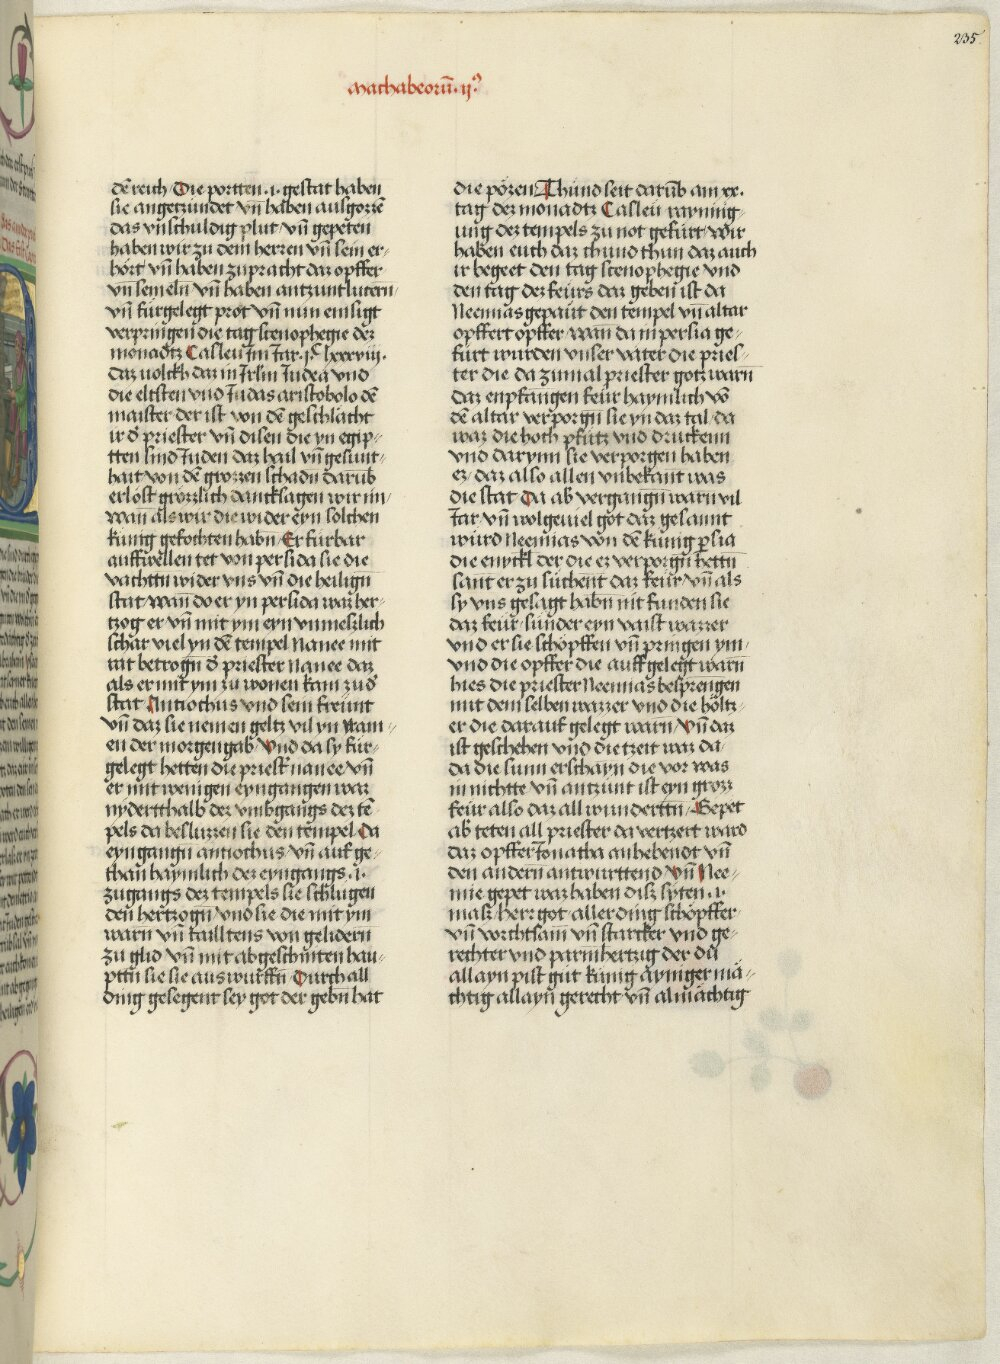 235
Machabeorū .ij.
dē reich Die portten .i. gestat haben
sie angetzündet vn̄ haben ausgozzē
das vnschuldig plut vn̄ gepeten
haben wir zu dem herren vn̄ sein er-
hört vn̄ haben zupracht daz opffer
vn̄ semeln vn̄ haben antzunt lucern
vn̄ fürgelegt prot vn̄ nun emsigt
verpringen die tag scenophegie dez
monadtz Casleu Im Jar .jc. lxxxviij.
daz volckh daz in Jrl̄m Judea vnd
die eltsten vnd Judas aristobolo dē
maister der ist von dē geschlächt
ir d̓ priester vn̄ disen die yn egip-
tten sind Juden daz hail vn̄ gesunt-
hait von dē grozzen schadn̄ darūb
erlöst grözzlich dancksagen wir im
wan̄ als wir die wider eyn solchen
künig gefochten habn̄ Er fürbar
auffwellen tet von persida sie die
vachttn̄ wider vns vn̄ die heilign̄
stat wan̄ do er yn persida waz her-
tzog er vn̄ mit ym eyn vnmeszlich
schar viel yn dē tempel Nanee mit
rat betrogn̄ d̓ priester Nanee daz
als er mit ym zu wonen kam zu d̓
stat Antiochus vnd sein freünt
vn̄ daz sie nemen geltz vil yn nam-
en der morgengab vnd da sy für-
gelegt hetten die priest̓ nanee vn̄
er mit wenigen eyngangen waz
nydertthalb dez vmbgangs dez tē-
pels da besluzzen sie den tempel Da
eyngangn̄ antiochus vn̄ auf ge-
than haymlich dez eyngangs .i.
zugangs dez tempels sie schlugen
den hertzogn̄ vnd sie die mit ym
warn̄ vn̄ tailltens von gelidern̄
zu glid vn̄ mit abgeschniten hau-
pttn̄ sie sie auswurffn̄ Durch all
ding gesegent sey got der gebn̄ hat
die pözen Thünd seit darūb am xx.
tag dez monadtz Casleu raynnig-
ung dez tempels zu not gefürt wir
haben euch daz chund thun daz auch
ir begeet den tag scenophegie vnd
den tag dez feürs daz geben ist da
Neemias gepaut den tempel vn̄ altar
opffert opffer wan̄ da in persia ge-
fürt wurden vnser väter die pries-
ter die da zumal priester gotz warn̄
daz enpfangen feür haymlich vō
dē altar verporgn̄ sie yn daz tal da
waz die hoch pfütz vnd druckenn
vnd darynn sie verporgen haben
ez daz also allen vnbekant was
die stat Da ab vergangn̄ warn̄ vil
Jar vn̄ wolgeuiel got daz gesannt
würd Neemias von dē künig p̄sia
die enyckl der die ez verporgn̄ hettn̄
sant er zu sūchent daz feür vn̄ als
sy vns gesagt habn̄ nit funden sie
daz feür sunder eyn vaist wazzer
vnd er sie schöpffen vn̄ pringen ym
vnd die opffer die auff gelegt warn̄
hies die priester Neemias besprengen
mit dem selben wazzer vnd die höltz-
er die darauf gelegt warn̄ vn̄ daz
ist geschehen vnd die tzeit waz da
da die sunn erschayn die vor was
in nichtte vn̄ antzünt ist eyn grosz
feür also daz all wunderttn̄ Gepet
ab teten all priester da vertzert ward
daz opffer Jonatha anhebendt vn̄
den andern̄ antwurttend vn̄ Nee-
mie gepet waz haben disz syten .i.
masz herr got aller ding schöpffer
vn̄ vorchtsam̄ vn̄ starcker vnd ge-
rechter vnd parmhertzig der dū
allayn pist gūt künig äyniger mä-
chtig allayn̄ gerecht vn̄ almächtig